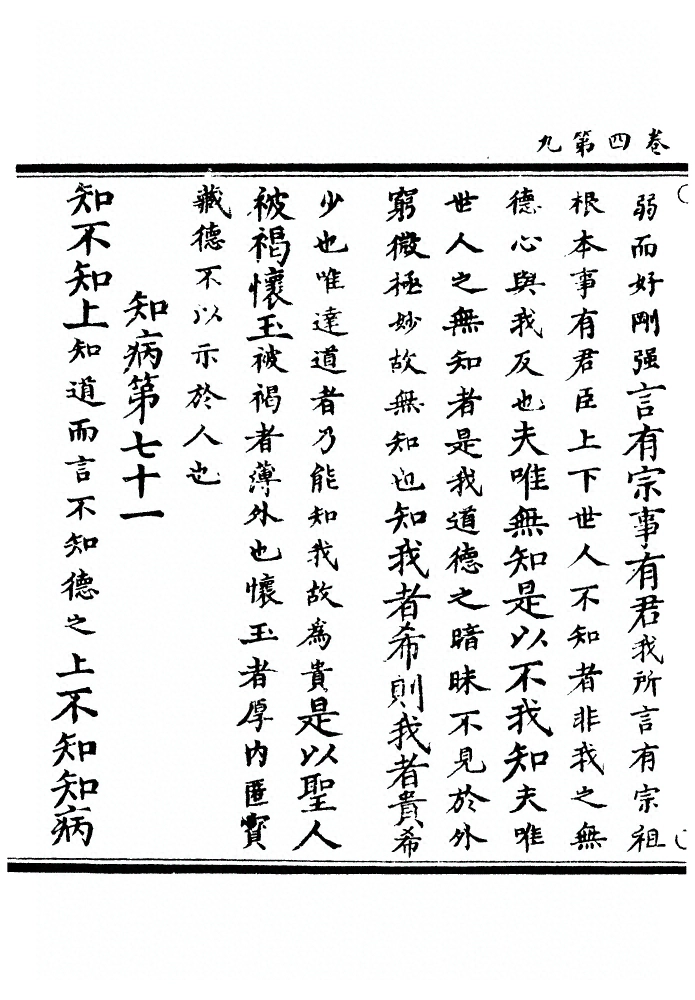 卷四第九
弱而好剛强言有宗事有君我所言有宗祖
根本事有君臣上下世人不知者非我之無
德心與我反也夫唯無知是以不我知夫唯
世人之無知者是我道德之暗昧不見於外
窮微極妙故無知也知我者希則我者貴希
少也唯達道者乃能知我故爲貴是以聖人
被褐懷玉被褐者薄外也懷玉者厚内匿寳
藏德不以示於人也
知病第七十一
知不知上知道而言不知德之上不知知病